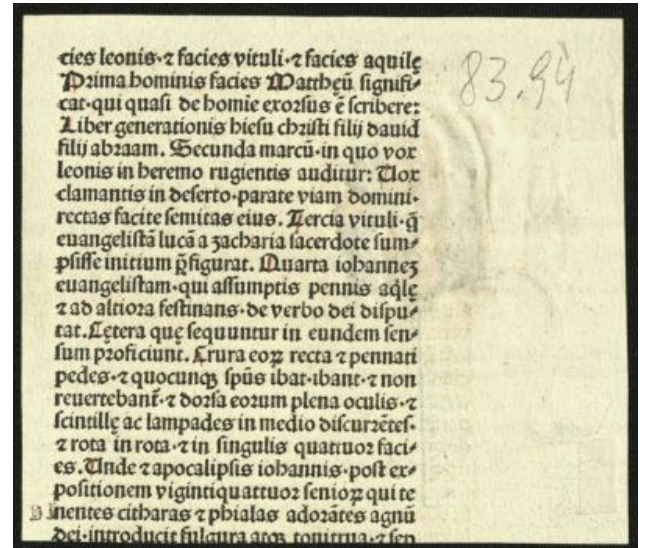 cies leonis·⁊ facies vituli·⁊ facies aquilę
Prima hominis facies Matthęū signifi⸗
cat·qui quasi de homīe exorsus ē scribere:
Liber generationis hiesu christi filij dauid
filij abraam. Secunda marcū·in quo vox
leonis in heremo rugientis auditur: Uox
clamantis in deserto·parate viam domini·
rectas facite semitas eius. Tercia vituli·q̄
euangelistā lucā a zacharia sacerdote sum⸗
psisse initium p̄figurat. Quarta iohannez
euangelistam·qui assumptis pennis aq̄lę
⁊ ad altiora festinans·de verbo dei dispu⸗
tat. Cętera quę sequuntur in eundem sen⸗
sum proficiunt. Crura eoꝝ recta ⁊ pennati
pedes·⁊ quocunqꝫ spūs ibat·ibant·⁊ non
reuertebant̄·⁊ dorsa eorum plena oculis·⁊
scintillę ac lampades in medio discurrētes·
⁊ rota in rota·⁊ in singulis quattuor faci⸗
es. Unde ⁊ apocalipsis iohannis·post ex⸗
positionem vigintiquattuor senioꝝ qui te
nentes citharas ⁊ phialas adorātes agnū
dei·introducit fulgura atqꝫ tonitrua·⁊ sep
83.94